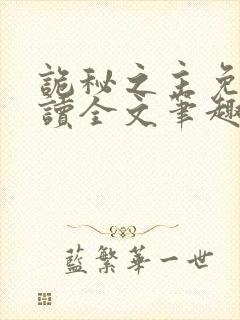 詭秘之主免
讀全文筆趣
藍繁華一世